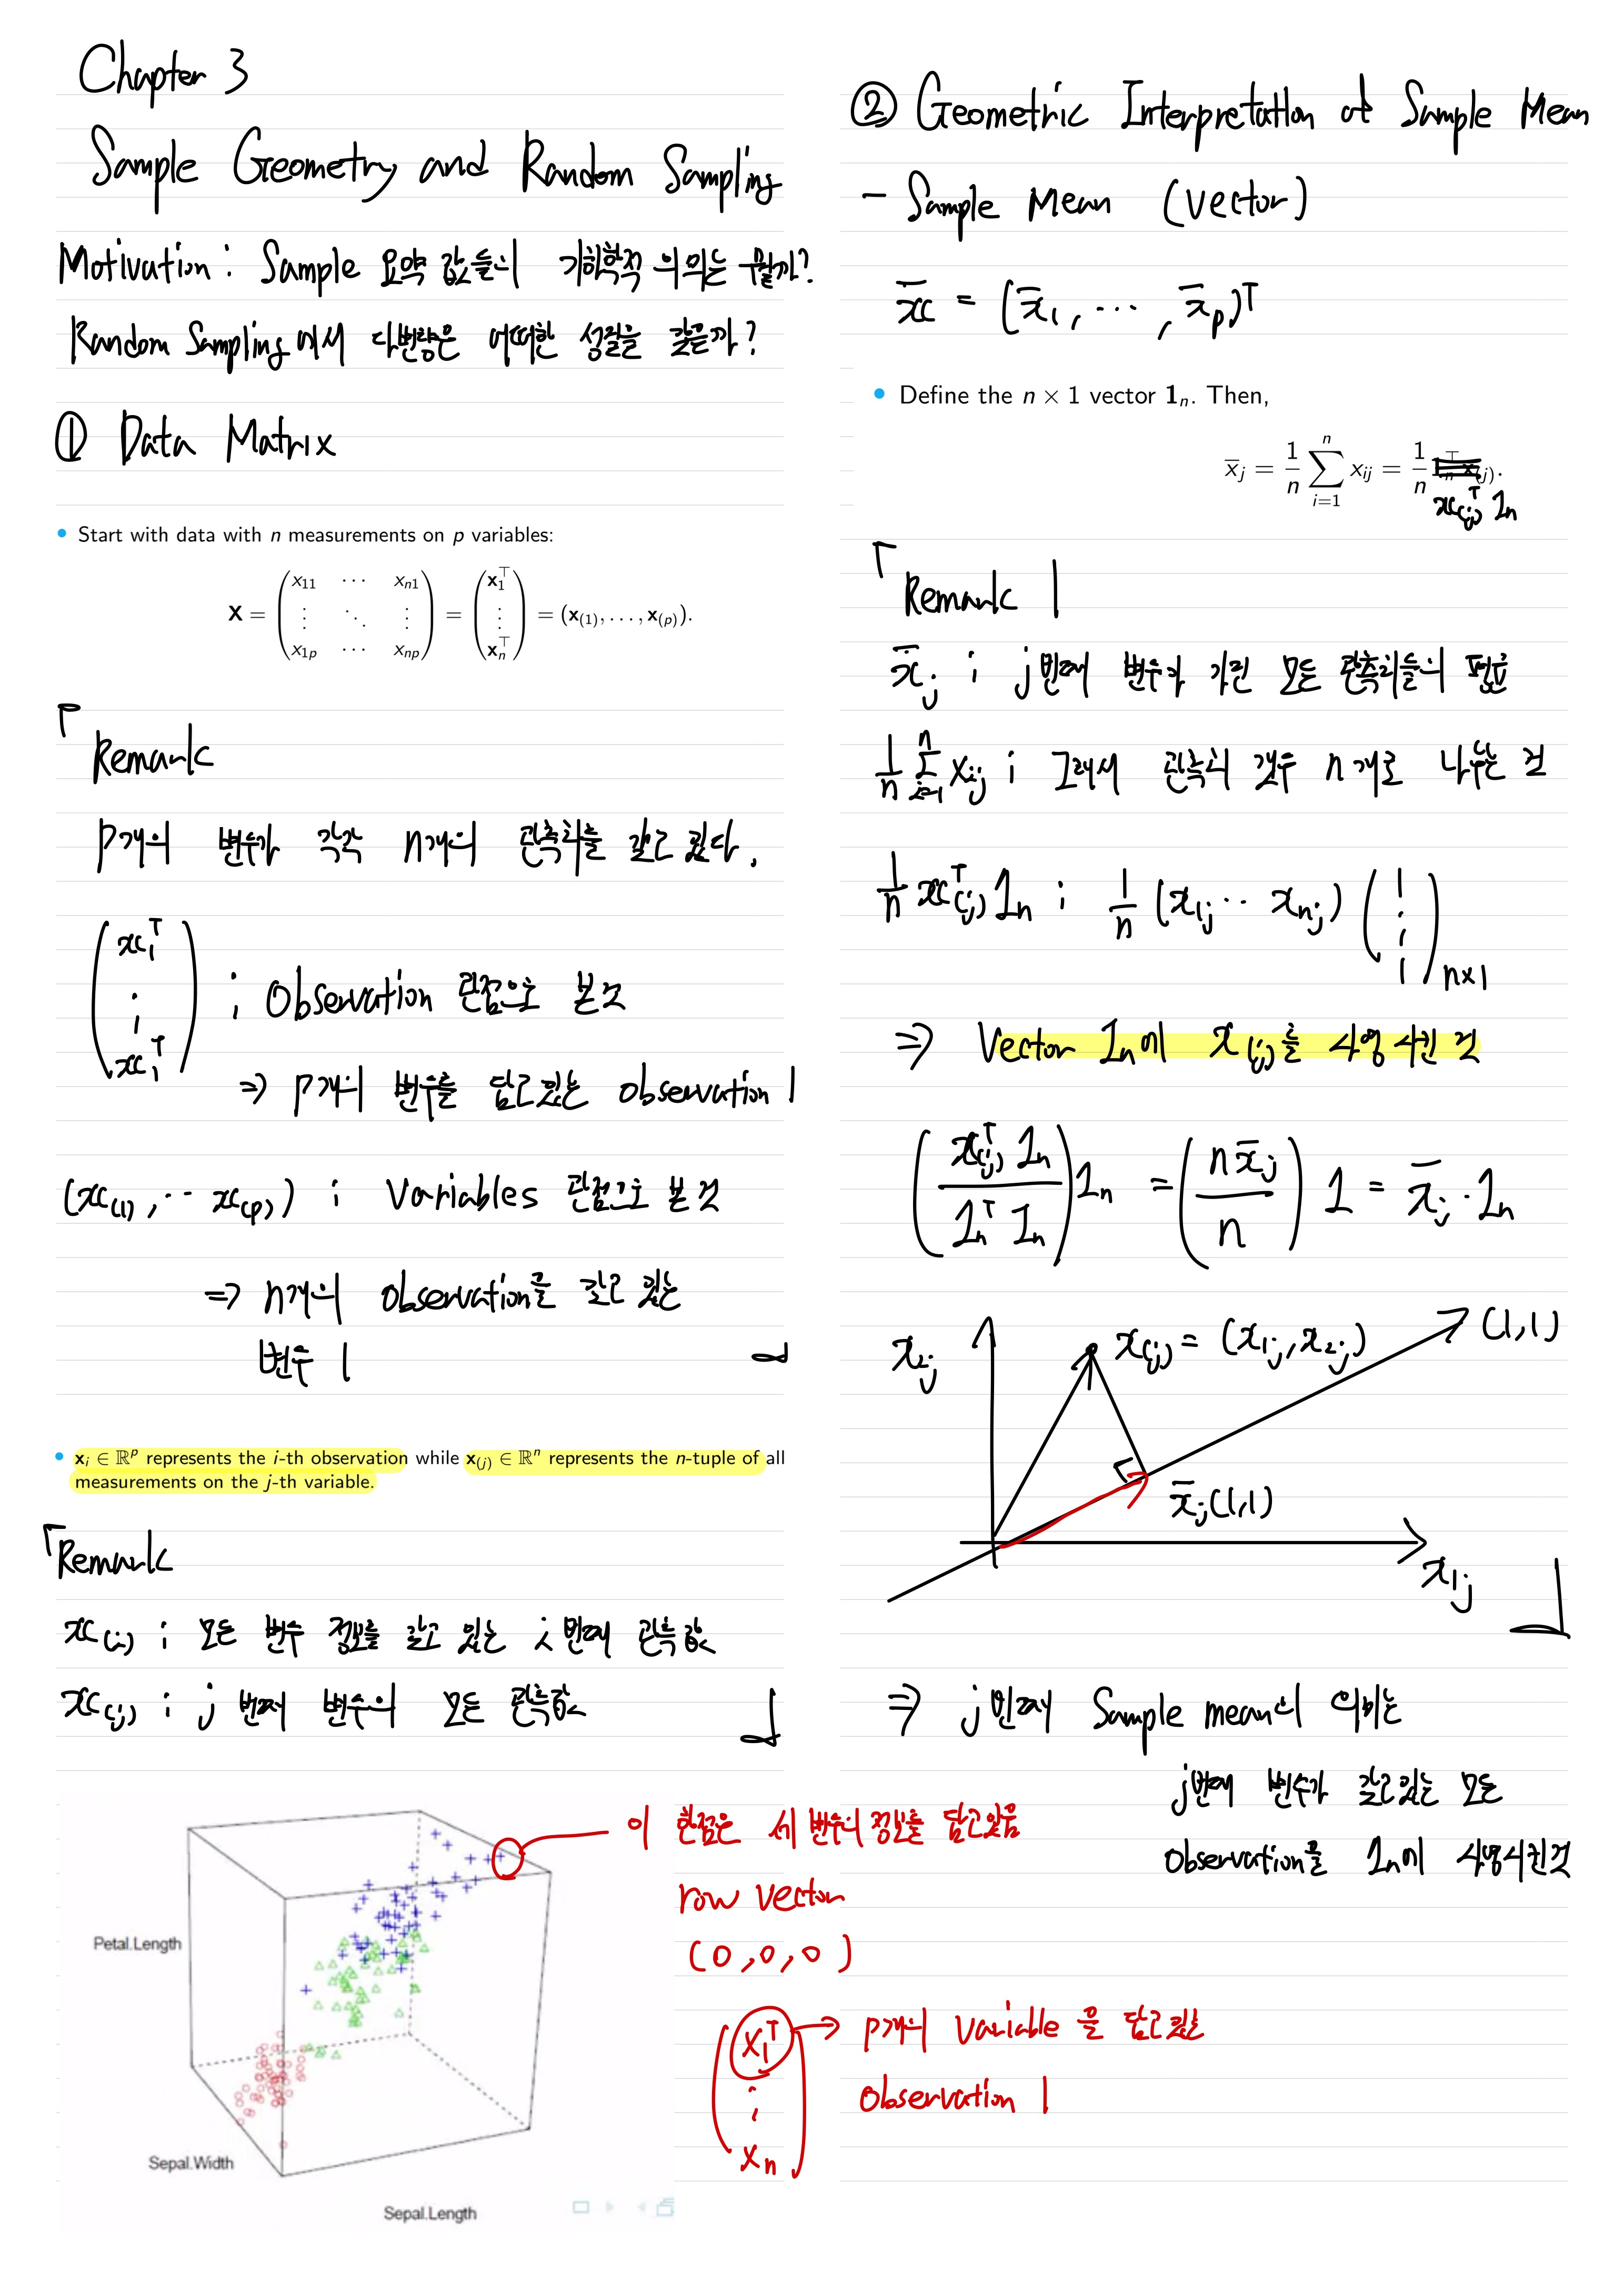 Chapter 3
Sample Geometry and Random Sampling
Motivation : Sample 요약 값들의 기하학적 의의는 뭘까?
Random Sampling 에서 다변량은 어떠한 성질을 갖을까?
① Data Matrix
• Start with data with n measurements on p variables:
X = ( x₁₁ ⋯ xₙ₁ ; ⋮ ⋱ ⋮ ; x₁ₚ ⋯ xₙₚ ) = ( x₁⊤ ; ⋮ ; xₙ⊤ ) = (x₍₁₎, . . . , x₍ₚ₎).
「Remark
p개의 변수가 각각 n개의 관측치를 갖고 있다.
( x₁ᵀ ; ⋮ ; x₁ᵀ ) ; Observation 관점으로 본 것
⇒ p개의 변수를 담고있는 observation 1
(x₍₁₎, ⋯ x₍ₚ₎) ; Variables 관점으로 본 것
⇒ n개의 observation을 갖고 있는
변수 1 」
• xᵢ ∈ ℝᵖ represents the i-th observation while x₍ⱼ₎ ∈ ℝⁿ represents the n-tuple of all
measurements on the j-th variable.
「Remark
x₍ᵢ₎ ; 모든 변수 정보를 갖고 있는 i 번째 관측값
x₍ⱼ₎ ; j 번째 변수의 모든 관측값 」
Petal.Length
Sepal.Width
Sepal.Length
이 한점은 세 변수의 정보를 담고있음
row vector
(0, 0, 0)
( x₁ᵀ ; ⋮ ; xₙ ) → p개의 Variable 을 담고 있는
Observation 1
② Geometric Interpretation of Sample Mean
- Sample Mean (vector)
x̄ = (x̄₁, ⋯, x̄ₚ)ᵀ
• Define the n × 1 vector 1ₙ. Then,
x̄ⱼ = 1/n ∑ᵢ₌₁ⁿ xᵢⱼ = 1/n 1ₙ⊤x₍ⱼ₎.
x₍ⱼ₎ᵀ 1ₙ
「Remark 1
x̄ⱼ ; j번째 변수가 가진 모든 관측치들의 평균
1/n ∑ᵢ₌₁ⁿ xᵢⱼ ; 그래서 관측치 갯수 n개로 나누는 것
1/n x₍ⱼ₎ᵀ 1ₙ ; 1/n (x₁ⱼ ⋯ xₙⱼ) ( 1 ; ⋮ ; 1 )ₙₓ₁
⇒ Vector 1ₙ에 x₍ⱼ₎를 사영 시킨 것
( x₍ⱼ₎ᵀ 1ₙ / 1ₙᵀ 1ₙ ) 1ₙ = ( n x̄ⱼ / n ) 1 = x̄ⱼ · 1ₙ
x₂ⱼ
x₍ⱼ₎ = (x₁ⱼ, x₂ⱼ)
(1,1)
x̄ⱼ(1,1)
x₁ⱼ 」
⇒ j번째 Sample mean의 의미는
j번째 변수가 갖고있는 모든
observation을 1ₙ에 사영시킨것